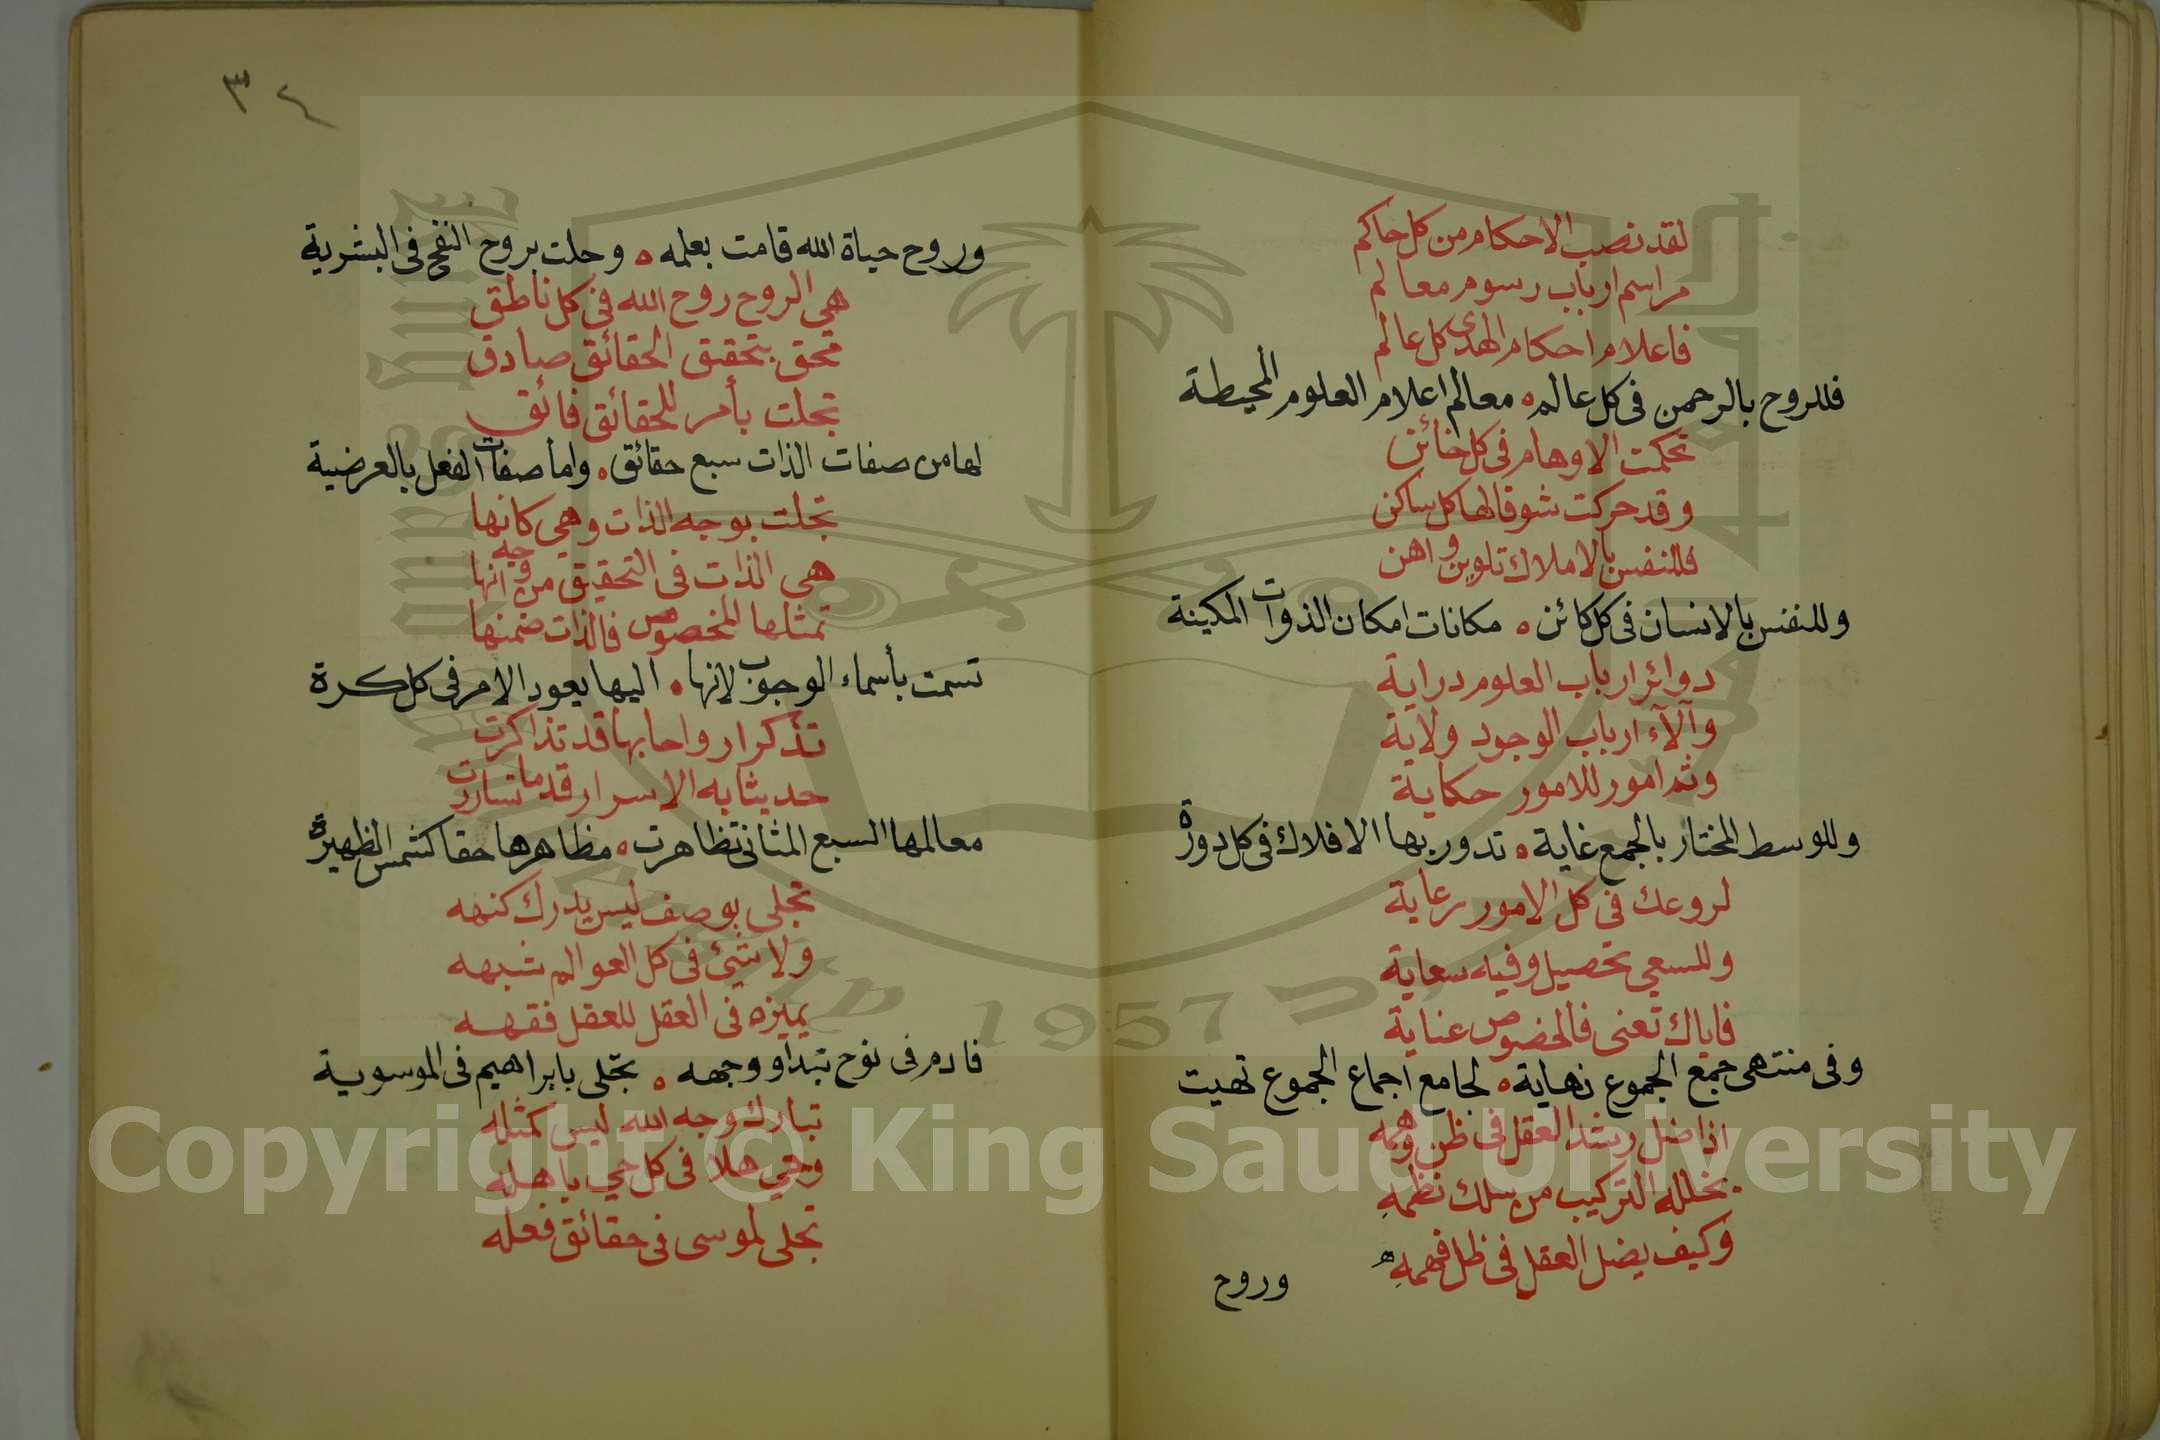 لقد نصب الاحكام من كل حاكم
مراسم ارباب رسوم معالم
فاعلام احكام الهدى كل عالم
فللروح بالرحمن فى كل عالم ه معالم اعلام العلوم المحيطة
تحكمت الاوهام فى كل خائن
وقد حركت شوقا لها كل ساكن
فللنفس بالاملاك تلوين واهن
وللنفس بالانسان فى كل كائن ه مكانات امكان الذوات المكينة
دوائر ارباب العلوم دراية
وآلآء ارباب الوجود ولاية
وثم امور للامور حكاية
وللوسط المختار بالجمع غاية ه تدور بها الافلاك فى كل دورة
لروعك فى كل الامور رعاية
وللسعي تحصيل وفيه سعاية
فاياك تعنى فالخصوص عناية
وفى منتهى جمع الجموع نهاية ه لجامع اجماع الجموع تهيت
اذا ضل رشد العقل فى ظن وهمه
تخلله التركيب من سلك نظمهِ
وكيف يضل العقل فى ظل فهمهِ
وروح
٣٤
وروح حياة الله قامت بعلمه ه وحلت بروح النفخ فى البشرية
هى الروح روح الله فى كل ناطق
تحق بتحقيق الحقائق صادق
تجلت بأمر للحقائق فائق
لها من صفات الذات سبع حقائق ه واما صفات الفعل بالعرضية
تجلت بوجه الذات وهى كانها
هى الذات فى التحقيق من وجه انها
تمثلها المخصوص فالذات ضمنها
تسمت بأسماء الوجوب لانها ه اليها يعود الامر فى كل كرة
تذكر ارواحا بها قد تذاكرت
حديثا به الاسرار قدما تساررت
معالمها السبع المثانى تظاهرت ه مظاهرها حقا كشمس الظهيرة
تجلى بوصف ليس يدرك كنهه
ولا شئ فى كل العوالم شبهه
يميزه فى العقل للعقل فقهه
فادم فى نوح تبدا ووجهه ه تجلى بابراهيم فى الموسوية
تبارك وجه الله ليس كمثله
وحي حلا فى كل حي باهله
تجلى لموسى فى حقائق فعله
Copyright © King Saud University
1957